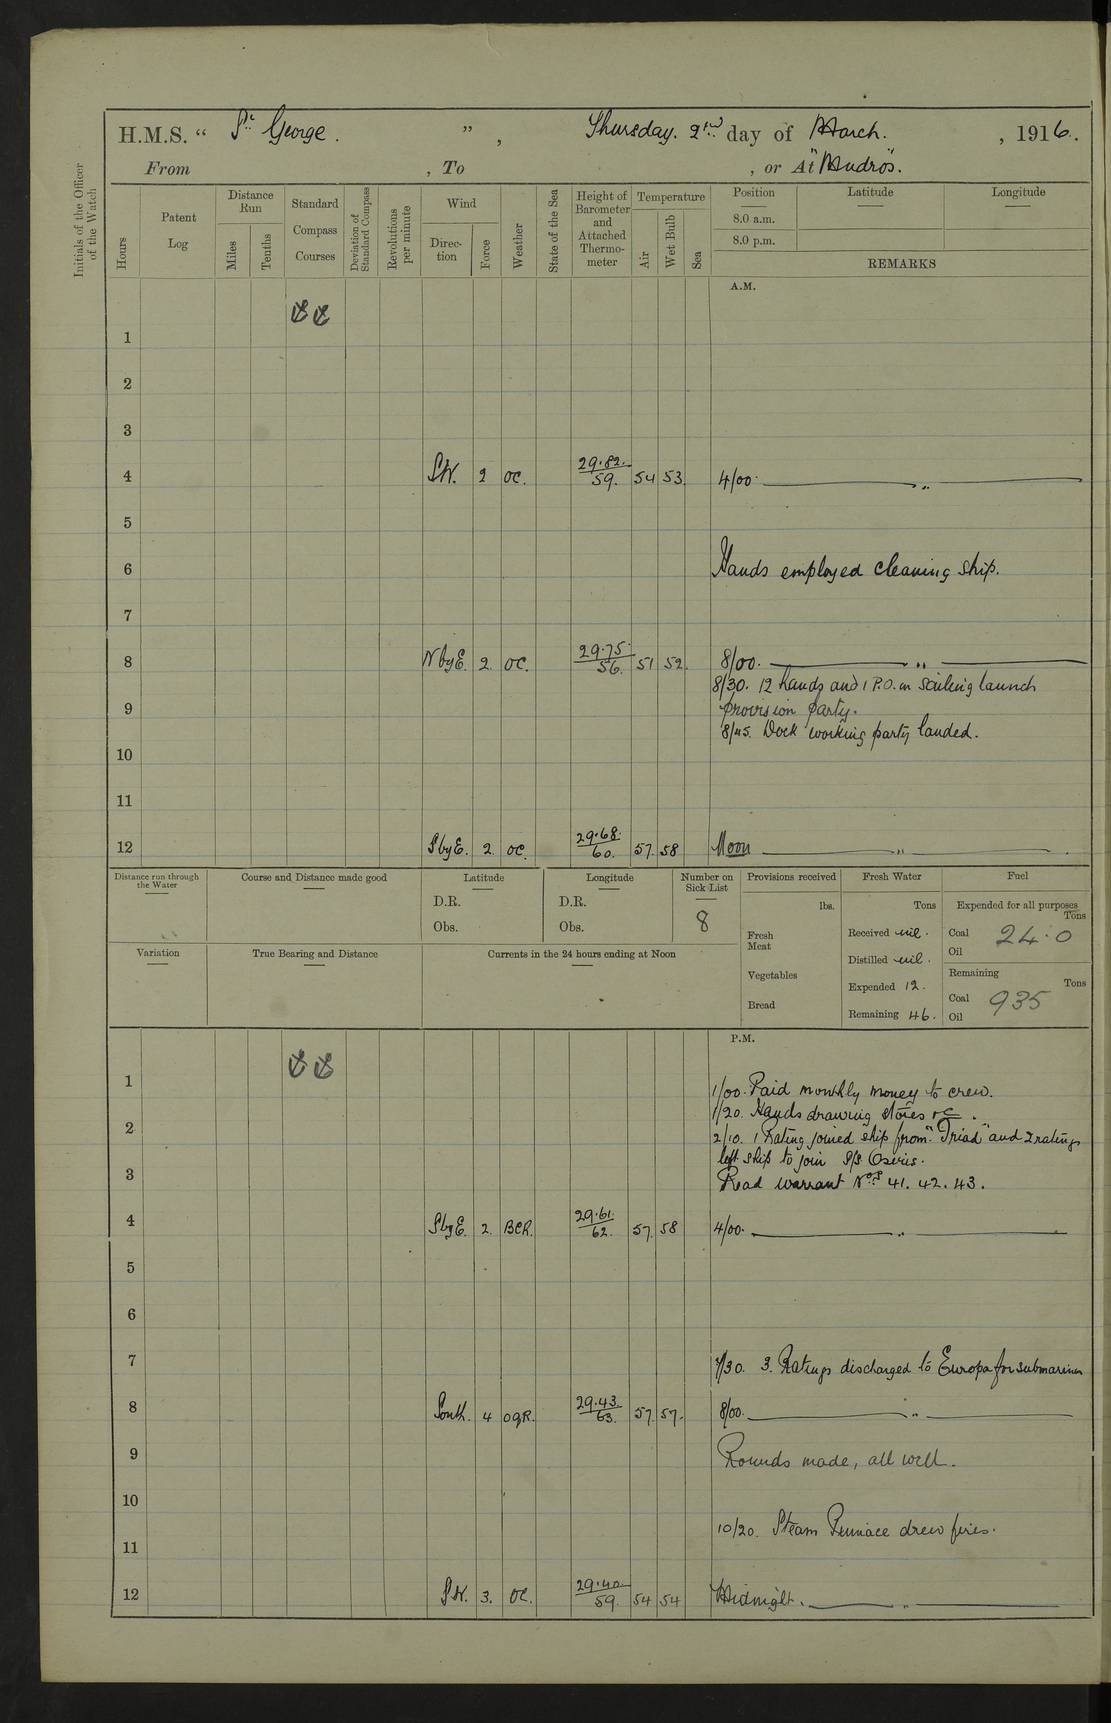 H.M.S. “ St. George. ” , Thursday. 2nd day of March. , 1916.
From , To , or At "Mudros".
Initials of the Officer of the Watch
Hours
Patent Log
Distance Run
Miles
Tenths
Standard Compass Courses
Deviation of Standard Compass
Revolutions per minute
Wind
Direc-tion
Force
Weather
State of the Sea
Height of Barometer and Attached Thermo-meter
Temperature
Air
Wet Bulb
Sea
Position Latitude Longitude
8.0 a.m.
8.0 p.m.
REMARKS
A.M.
1
2
3
4 SW. 2 oc. 29.82. 59. 54 53. 4/00. „
5
6 Hands employed cleaning ship.
7
8 N by E. 2. oc. 29.75. 56. 51 52. 8/00. „
8/30. 12 hands and 1 P.O. in Sailing launch
9 provision party.
8/45. Dock working party landed.
10
11
12 S by E. 2. oc. 29.68. 60. 57. 58 Noon „
Distance run through the Water
Course and Distance made good
Latitude
D.R.
Obs.
Longitude
D.R.
Obs.
Number on Sick List
8
Provisions received
lbs.
Fresh Meat
Vegetables
Bread
Fresh Water
Tons
Received nil.
Distilled nil.
Expended 12.
Remaining 46.
Fuel
Expended for all purposes
Tons
Coal 24.0
Oil
Remaining
Tons
Coal 935
Oil
Variation
True Bearing and Distance
Currents in the 24 hours ending at Noon
P.M.
1 1/00. Paid monthly money to crew.
1/20. Hands drawing stores &c.
2 2/10. 1 Rating joined ship from "Triad" and 2 ratings
left ship to join S/S Osiris.
3 Read warrant Nos 41. 42. 43.
4 S by E. 2. BCR. 29.61. 62. 57. 58 4/00. „
5
6
7 7/30. 3. Ratings discharged to Europa for submarines
8 South. 4 OQR. 29.43. 63. 57 57. 8/00. „
9 Rounds made, all well.
10
10/20. Steam Pinnace drew fires.
11
12 SW. 3. oc. 29.40. 59. 54 54 Midnight. „